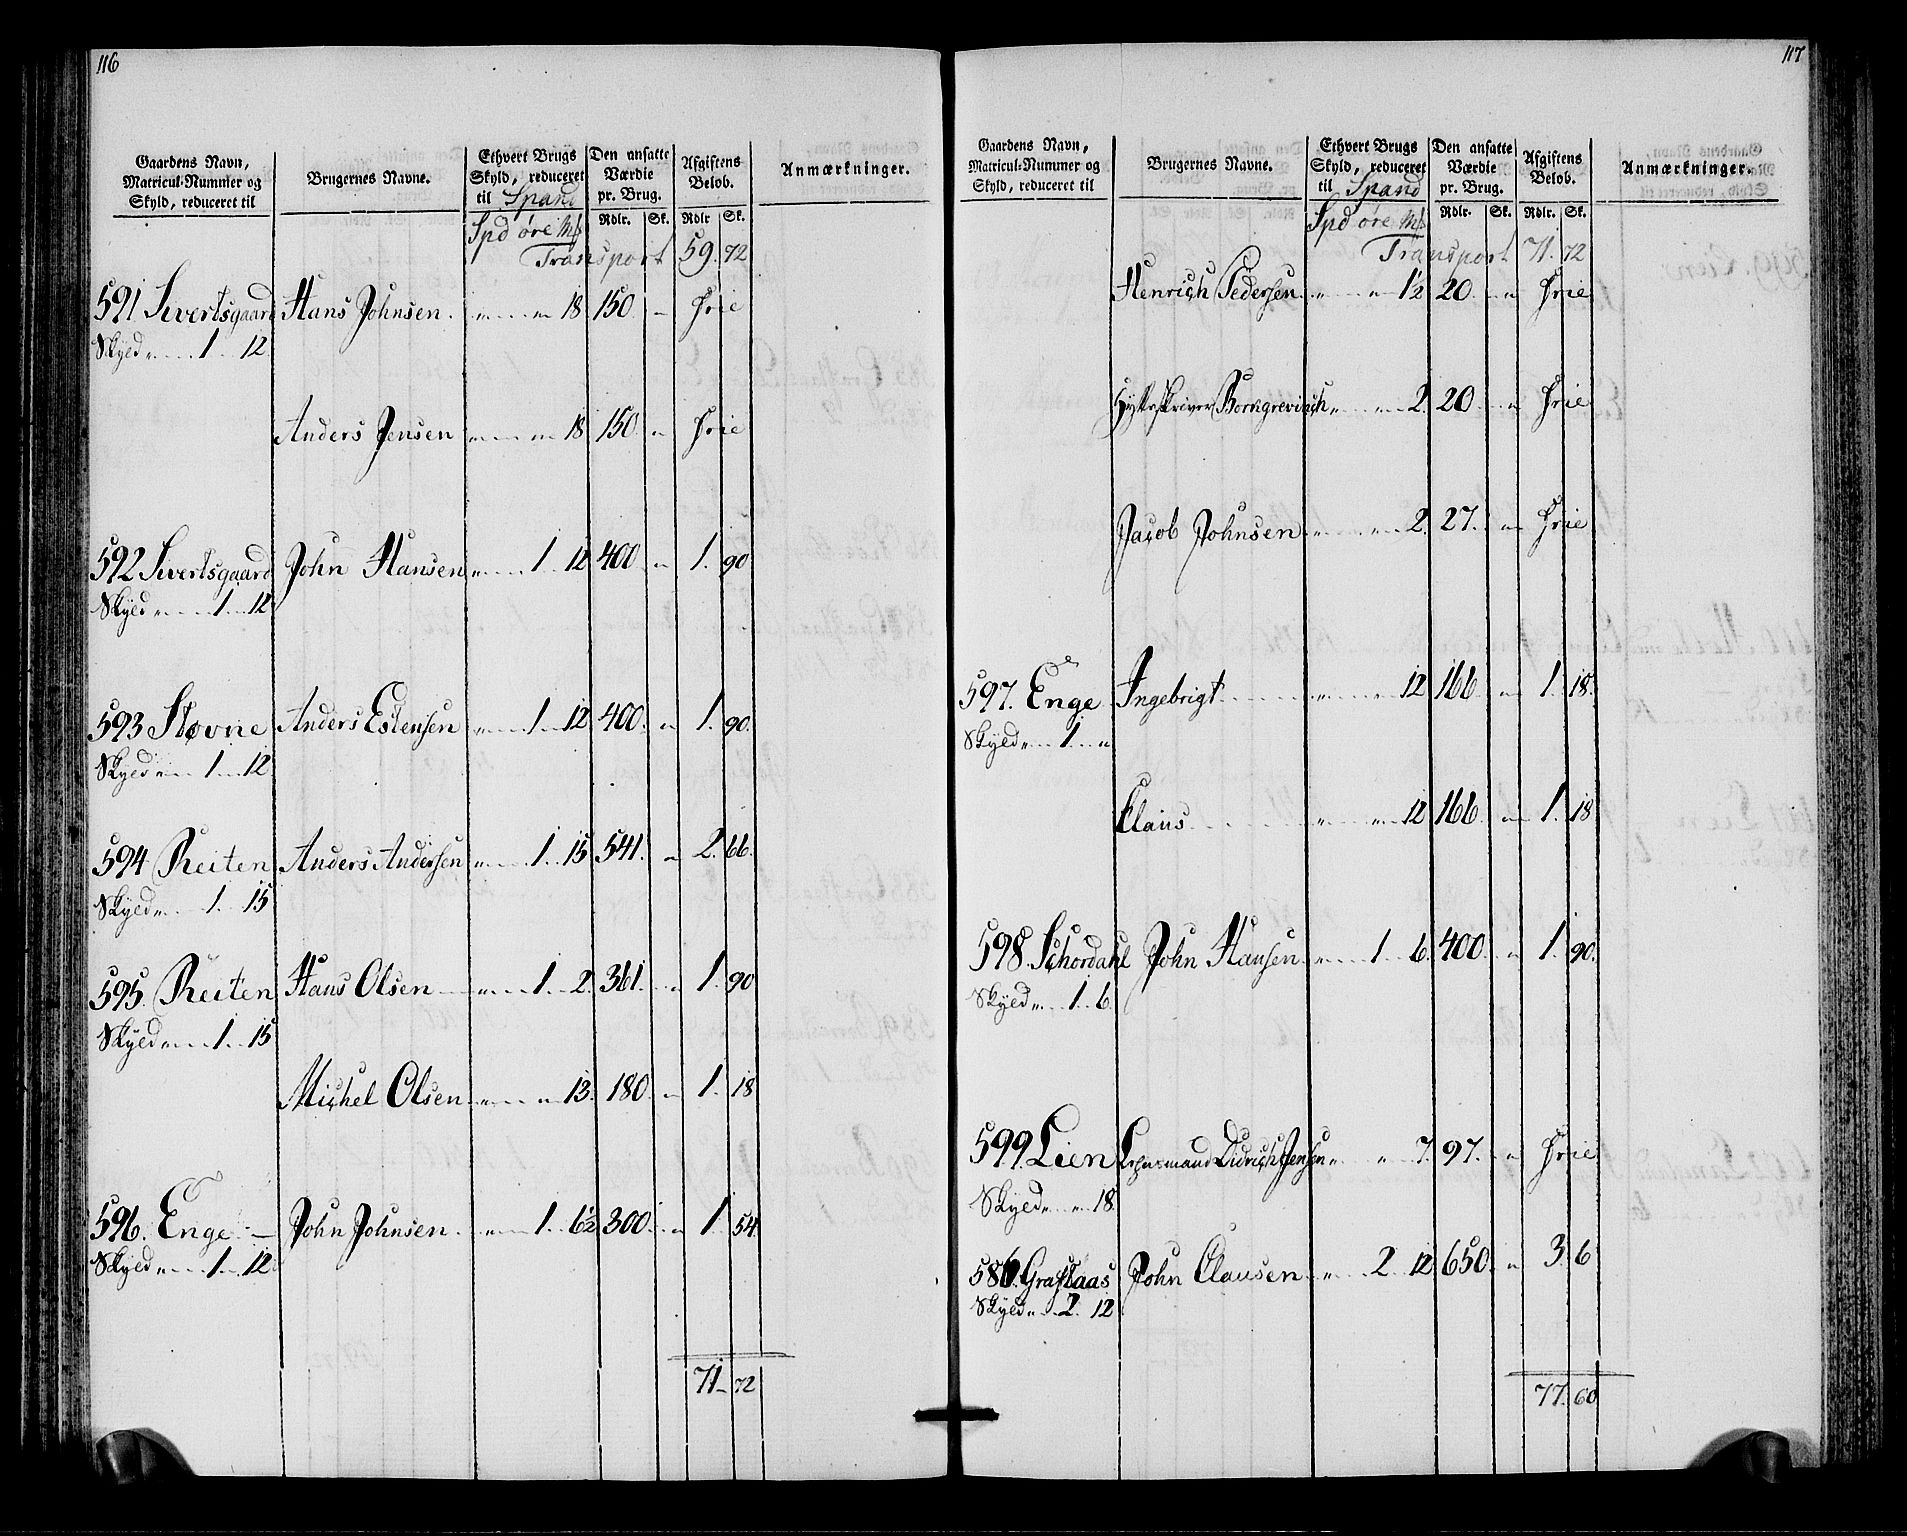 116
Gaardens Navn, Matricul-Nummer og Skyld, reduceret til | Brugernes Navne. | Ethvert Brugs Skyld, reduceret til Spand | Den ansatte Værdie pr. Brug. | Afgiftens Belob. | Anmærkninger.
Spd øre Mk | Rdlr. Sk. | Rdlr Sk.
Transport 59. 72
591 Sivertsgaard Hans Johnsen. „ „ 18 150. „ Frie
Skyld „ 1 12.
Anders Jensen „ „ 18 150. „ Frie
592 Sivertsgaard John Hansen „ 1 12 400 „ 1. 90
Skyld „ 1 12
593 Stovne Anders Estensen „ 1 12 400. „ 1. 90.
Skyld „ 1 12
594 Reiten Anders Andersen „ 1 15 541. „ 2. 66.
Skyld „ 1 15
595. Reiten Hans Olsen „ 1 2. 361. „ 1. 90
Skyld „ 1 15
Michel Olsen „ „ 13. 180. „ 1. 18
596. Enge John Johnsen. „ 1 6½ 300. „ 1 54.
Skyld „ 1 12
71 72
117
Gaardens Navn, Matricul-Nummer og Skyld, reduceret til | Brugernes Navne. | Ethvert Brugs Skyld, reduceret til Spand | Den ansatte Værdie pr. Brug. | Afgiftens Belob. | Anmærkninger.
Spd øre Mk | Rdlr. Sk. | Rdlr. Sk.
Transport 71. 72
Henrich Pedersen „ „ 1½ 20. „ Frie
Hytteskriver Borchgrevinch „ „ 2. 20 „ Frie
Jacob Johnsen „ „ 2. 27. „ Frie
597. Enge Ingebrigt „ „ 12 166 „ 1. 18.
Skyld „ 1 „
Claus „ „ 12 166. „ 1. 18
598. Schordahl John Hansen „ 1 6. 400 „ 1. 90.
Skyld „ 1 6.
599. Lien Lehnsmand Didrich Jensen „ „ 7. 97. „ Frie
Skyld „ „ 18
586. Graftaas John Clausen „ 2 12 650. „ 3 6
Skyld „ 2. 12.
77. 60